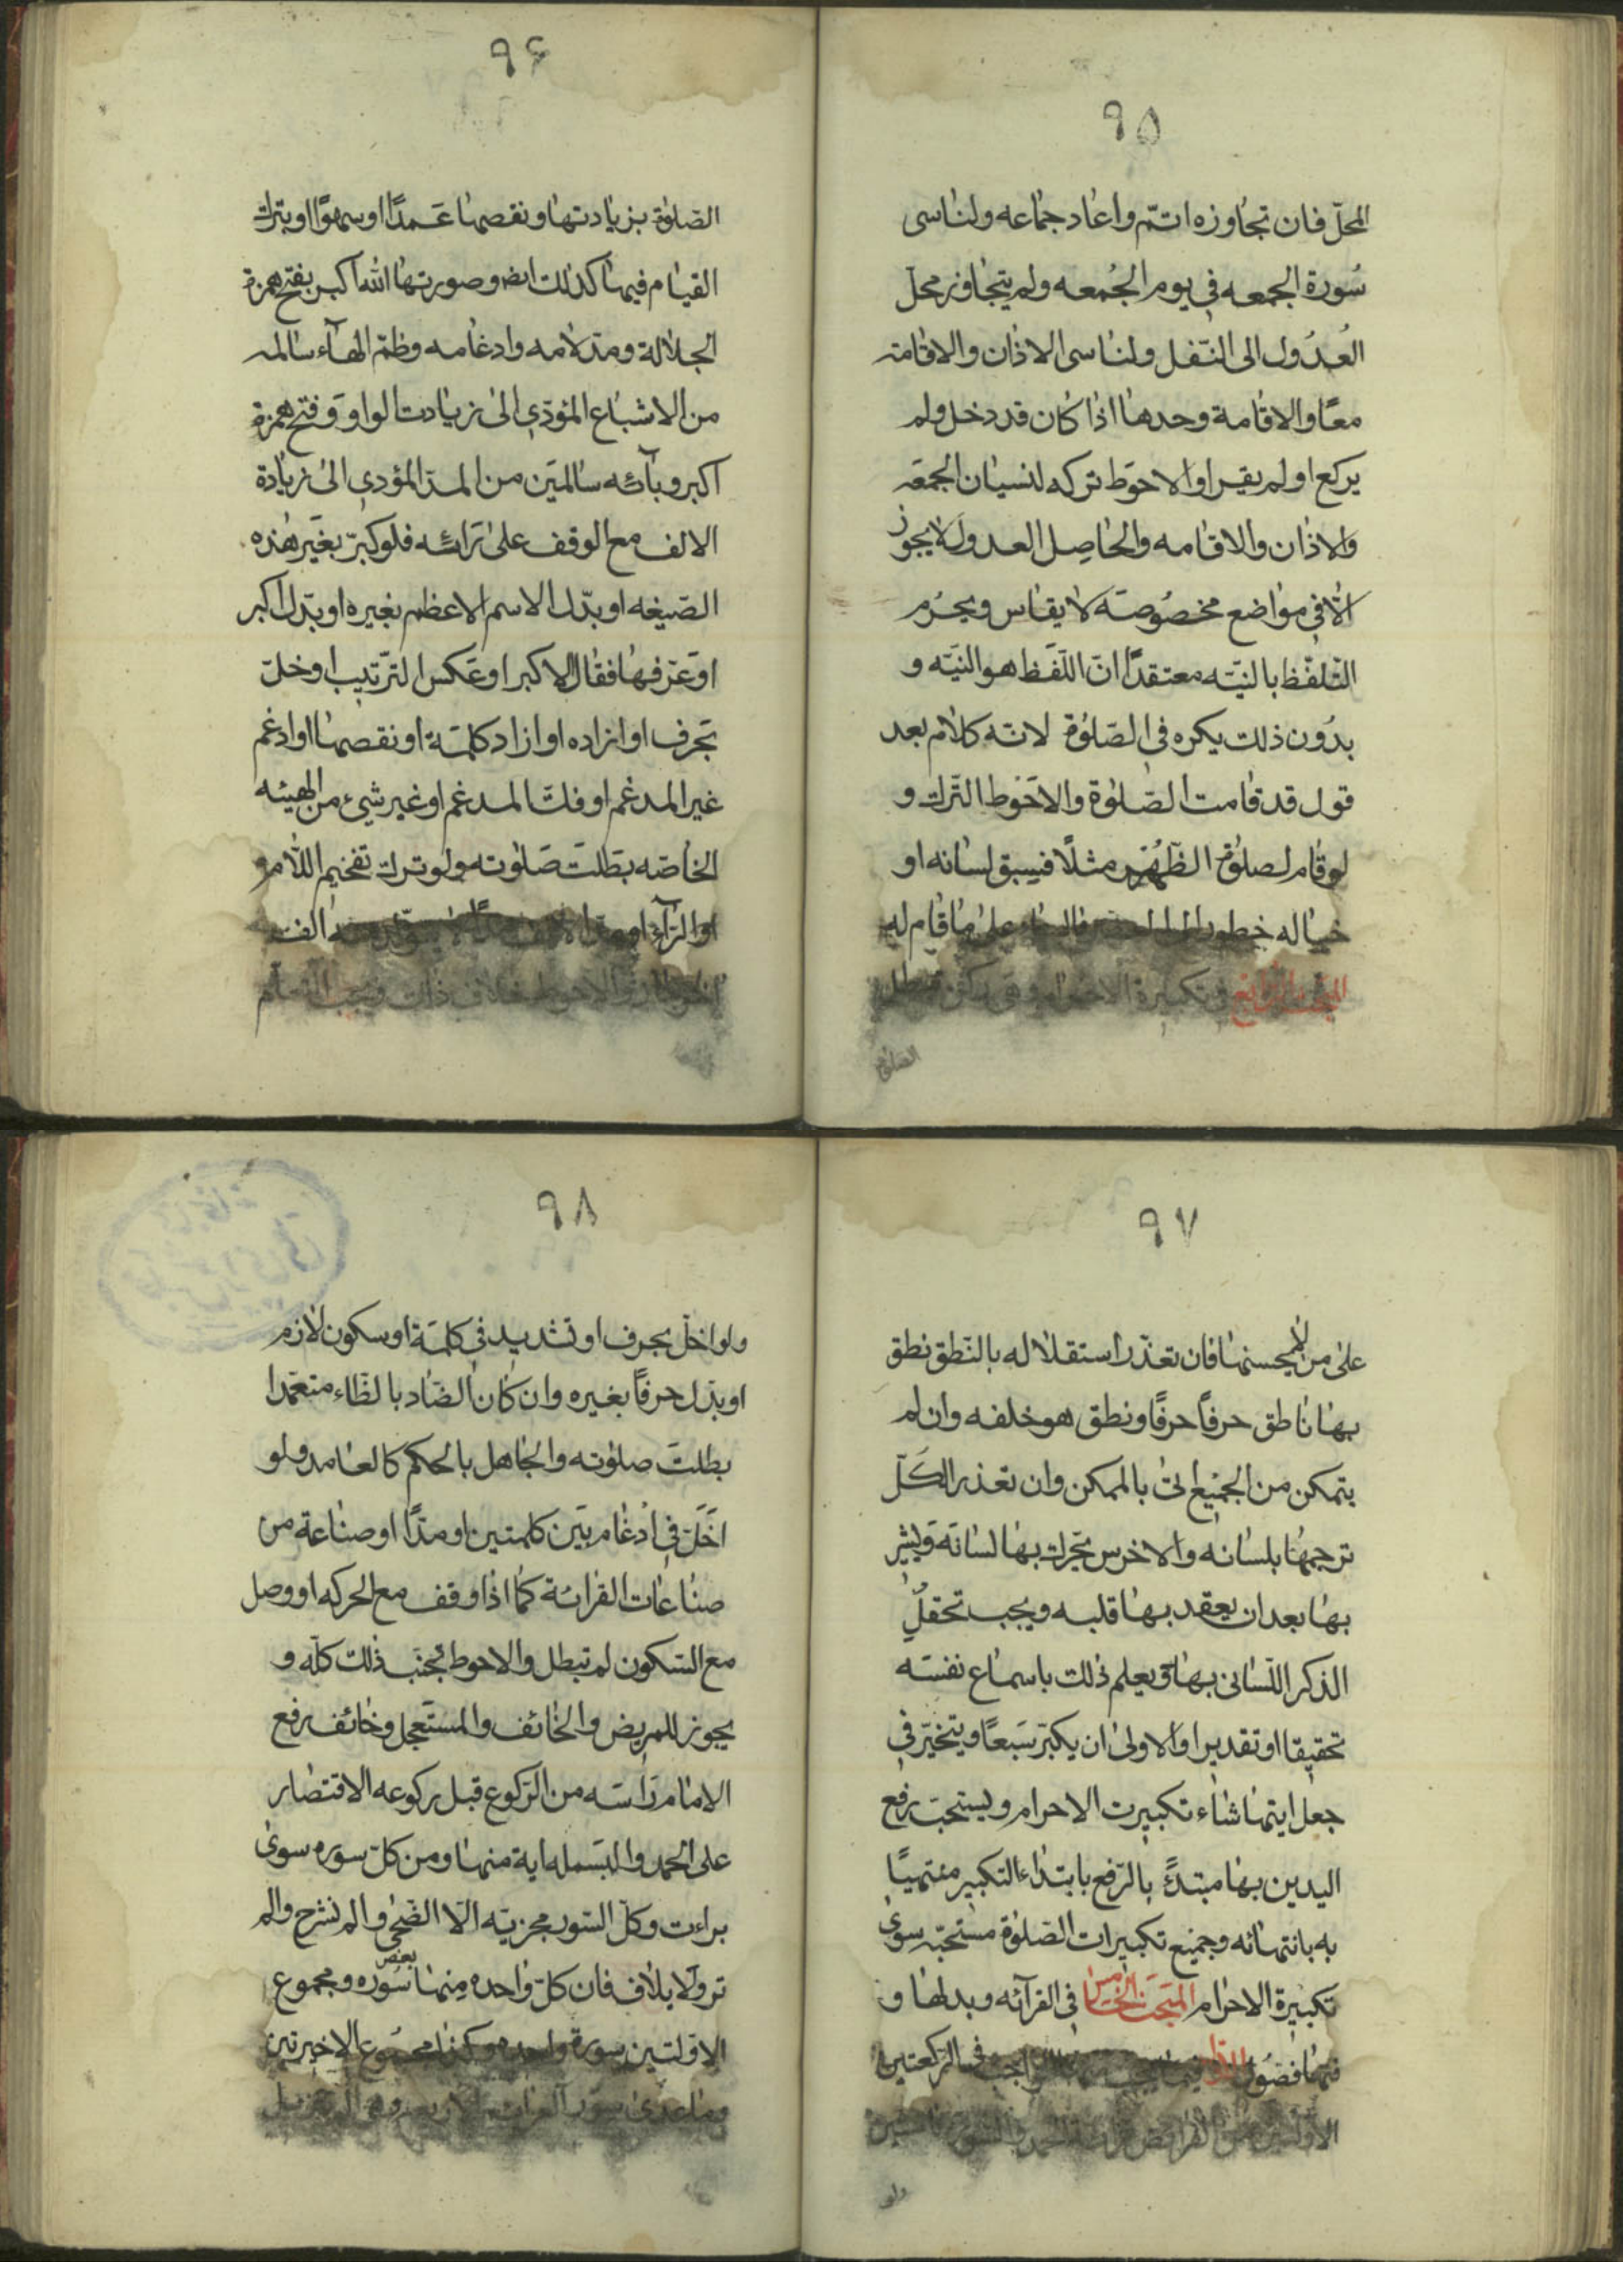 ٩٥
المحلّ فان تجاوزه اتمّ واعاد جماعه ولناسى
سُورة الجمعه فى يوم الجُمعه ولم يتجاوز محلّ
العُدُول الى النّفل ولناسى الاذان والاقامة
معًا والاقامة وحدها اذا كان قد دخل ولم
يركع او لم يقرا والاحوَط تركه لنسيان الجمعَه
والاذان والاقامه والحاصِل العدول لا يجوز
الّا فى مواضع مخصُوصَة لا يقاس ويحرُم
التلفّظ بالنيّه معتقدًا انّ اللّفَظ هو النيّه و
بدُون ذلك يكره فى الصّلوٰة لانّه كلام بعد
قول قد قامت الصّلوٰة والاحوَط التّرك و
لو قام لصلوٰة الظّهُر مثلًا فسبق لسانه او
خياله خطور على ما قام له
المبحث الرّابع فى تكبيرة الاحرام وهى ركن تبطل
الصلوٰة
٩۶
الصّلوٰة بزيادتها ونقصها عَمدًا او سهوًا او بترك
القيام فيها كذلك ايض وصورتها اللّه اكبر بفتح همزة
الجلالة ومدّ لامه وادغامه وظمّ الهآء سالمه
من الاشباع المؤدّى الى زيادت الواو وَفتح همزة
اكبر وبآئه سالمتين من المدّ المؤدى الى زيادة
الالف مع الوقف على رَائه فلو كبّر بغير هٰذه
الصّيغه او بدّل الاسم الاعظم بغيره او بدّل اكبر
او عَرّفها فقال الاكبر او عَكس الترّتيب او خلّ
بحرف او ازاده او ازاد كلمَة او نقصها او ادغم
غير المدغم او فكّ المدغم او غير شيء من الهيئه
الخاصّه بطلَت صَلوٰته ولو ترك تفخيم اللّام و
او الرّآء او الف
والاحوط خلاف ذلك ويجب التعلّم
٩٧
على من لا يحسنها فان تعذّر استقلاله بالنّطق نطق
بها ناطق حرفًا حرفًا ونطق هو خلفه وان لم
يتمكن من الجميع اتى بالممكن وان تعذر الكَلّ
ترجمها بلسانه والاخرس يحّرك بها لسانَه وَيشير
بها بعد ان يعقد بها قلبه ويجب تحقلّ
الذكر اللّسانى بها ويعلم ذلك باسماع نفسَه
تحقيقا او تقديرا والاولى ان يكبّر سَبعًا ويتخيّر فى
جعل ايتها شاء تكبيرت الاحرام ويستحبّ رفع
اليدين بها مبتدءً بالرّفع بابتداء التكبير منتهيًا
به بانتهائه وجميع تكبيرات الصّلوٰة مستحبّه سوى
تكبيرة الاحرام المبحث الخامس فى القرآئه وبدلها و
فيها فصُول الاوّل فيما يجب الواجب فى الرّكعتين
الاوّلتين من الفرائض قرائة الحمد والسّورة
ولو
٩٨
ولو اخلّ بحرف او تشديد فى كلمَة او سكون لازم
او بدّل حرفًا بغيره وان كان الضّاد بالظّاء متعمّدا
بطلتَ صلوٰته والجاهل بالحكم كالعامد ولو
اَخَلّ فى ادغام بَيَن كلمتين او مدًّا او صناعة من
صناعات القرائة كما اذا وقف مع الحركه او وصل
مع السّكون لم تبطل والاحوط تجنّب ذٰلك كلّه و
يجوز للمريض والخائف والمستعجل وخائف رفع
الامام رَاسَه من الرّكوع قبل ركوعه الاقتصار
على الحمد والبسَمله اية منها ومن كلّ سوره سوى
براءت وكلّ السّور مجزيّه الّا الضّحى والم نشرح والم
تر ولايلاف فان كلّ واحده منها بعض سُوره ومجموع
الاوّلتين سورة واحده وكذا مجمُوع الاخيرتين
وما عدى سور العزائم الاربع وهى الم تنزيل